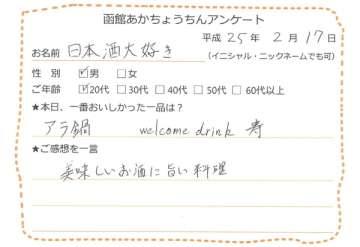 函館あかちょうちんアンケート
平成 25年 2月 17日
お名前 日本酒大好き (イニシャル・ニックネームでも可)
性 別 ☑男 □女
ご年齢 ☑20代 □30代 □40代 □50代 □60代以上
★本日、一番おいしかった一品は?
アラ鍋 welcome drink 寿
★ご感想を一言
美味しいお酒に旨い料理